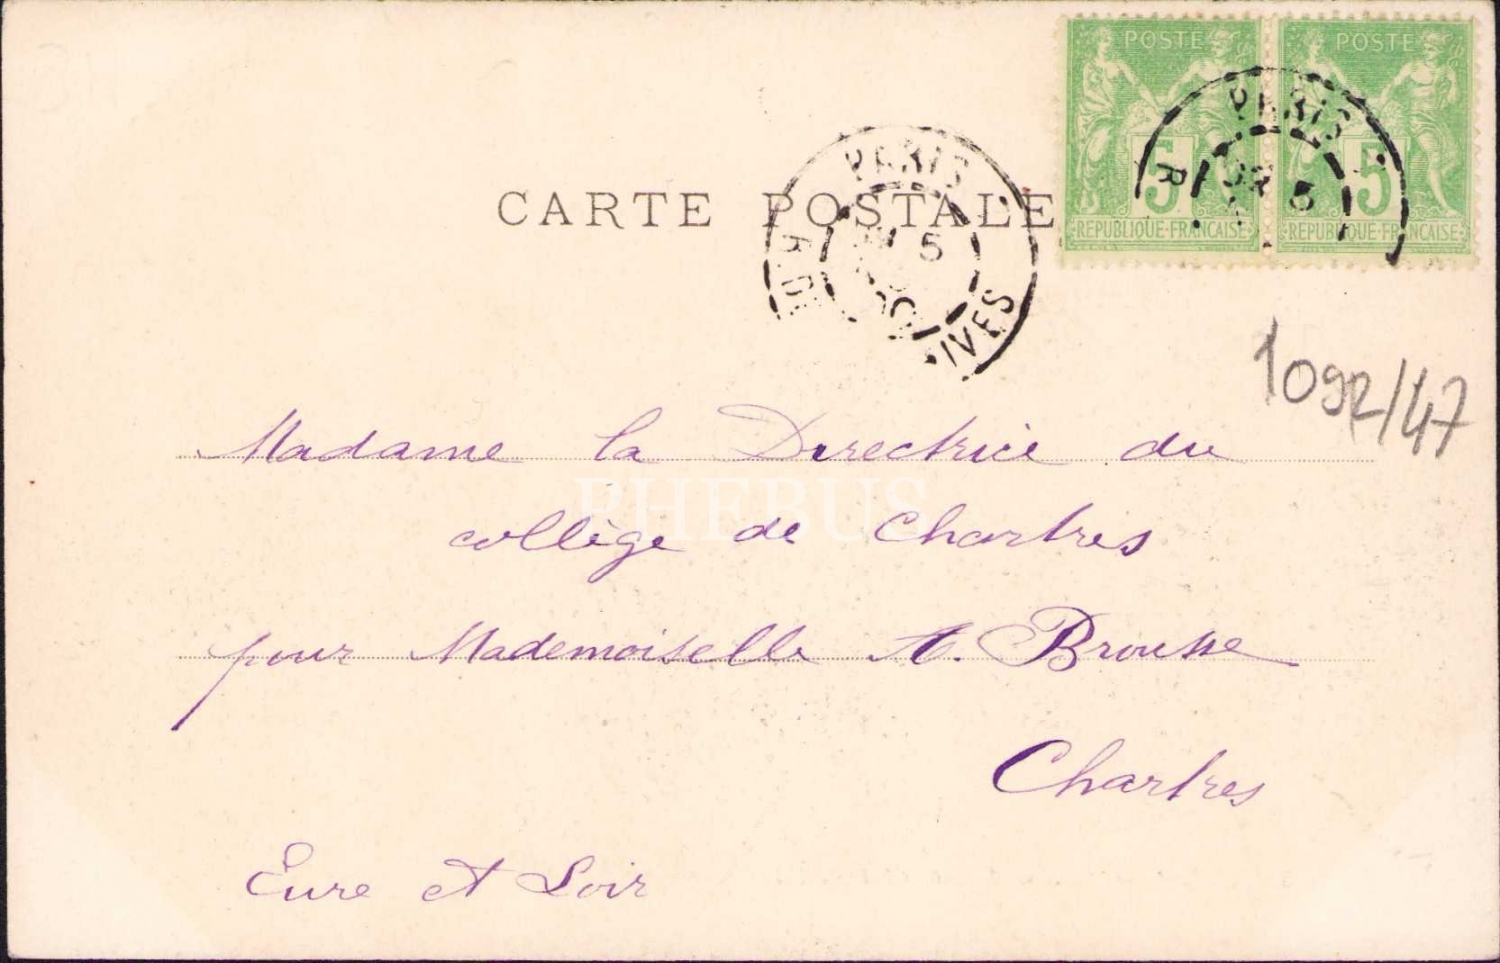 POSTE POSTE
5 5
REPUBLIQUE-FRANCAISE REPUBLIQUE-FRANCAISE
PARIS
R 5
CARTE POSTALE
PARIS
5
R. DE
IVES
1092/47
Madame la Directrice du
collège de Chartres
PHEBUS
pour Mademoiselle A. Brousse
Chartres
Eure et Loir